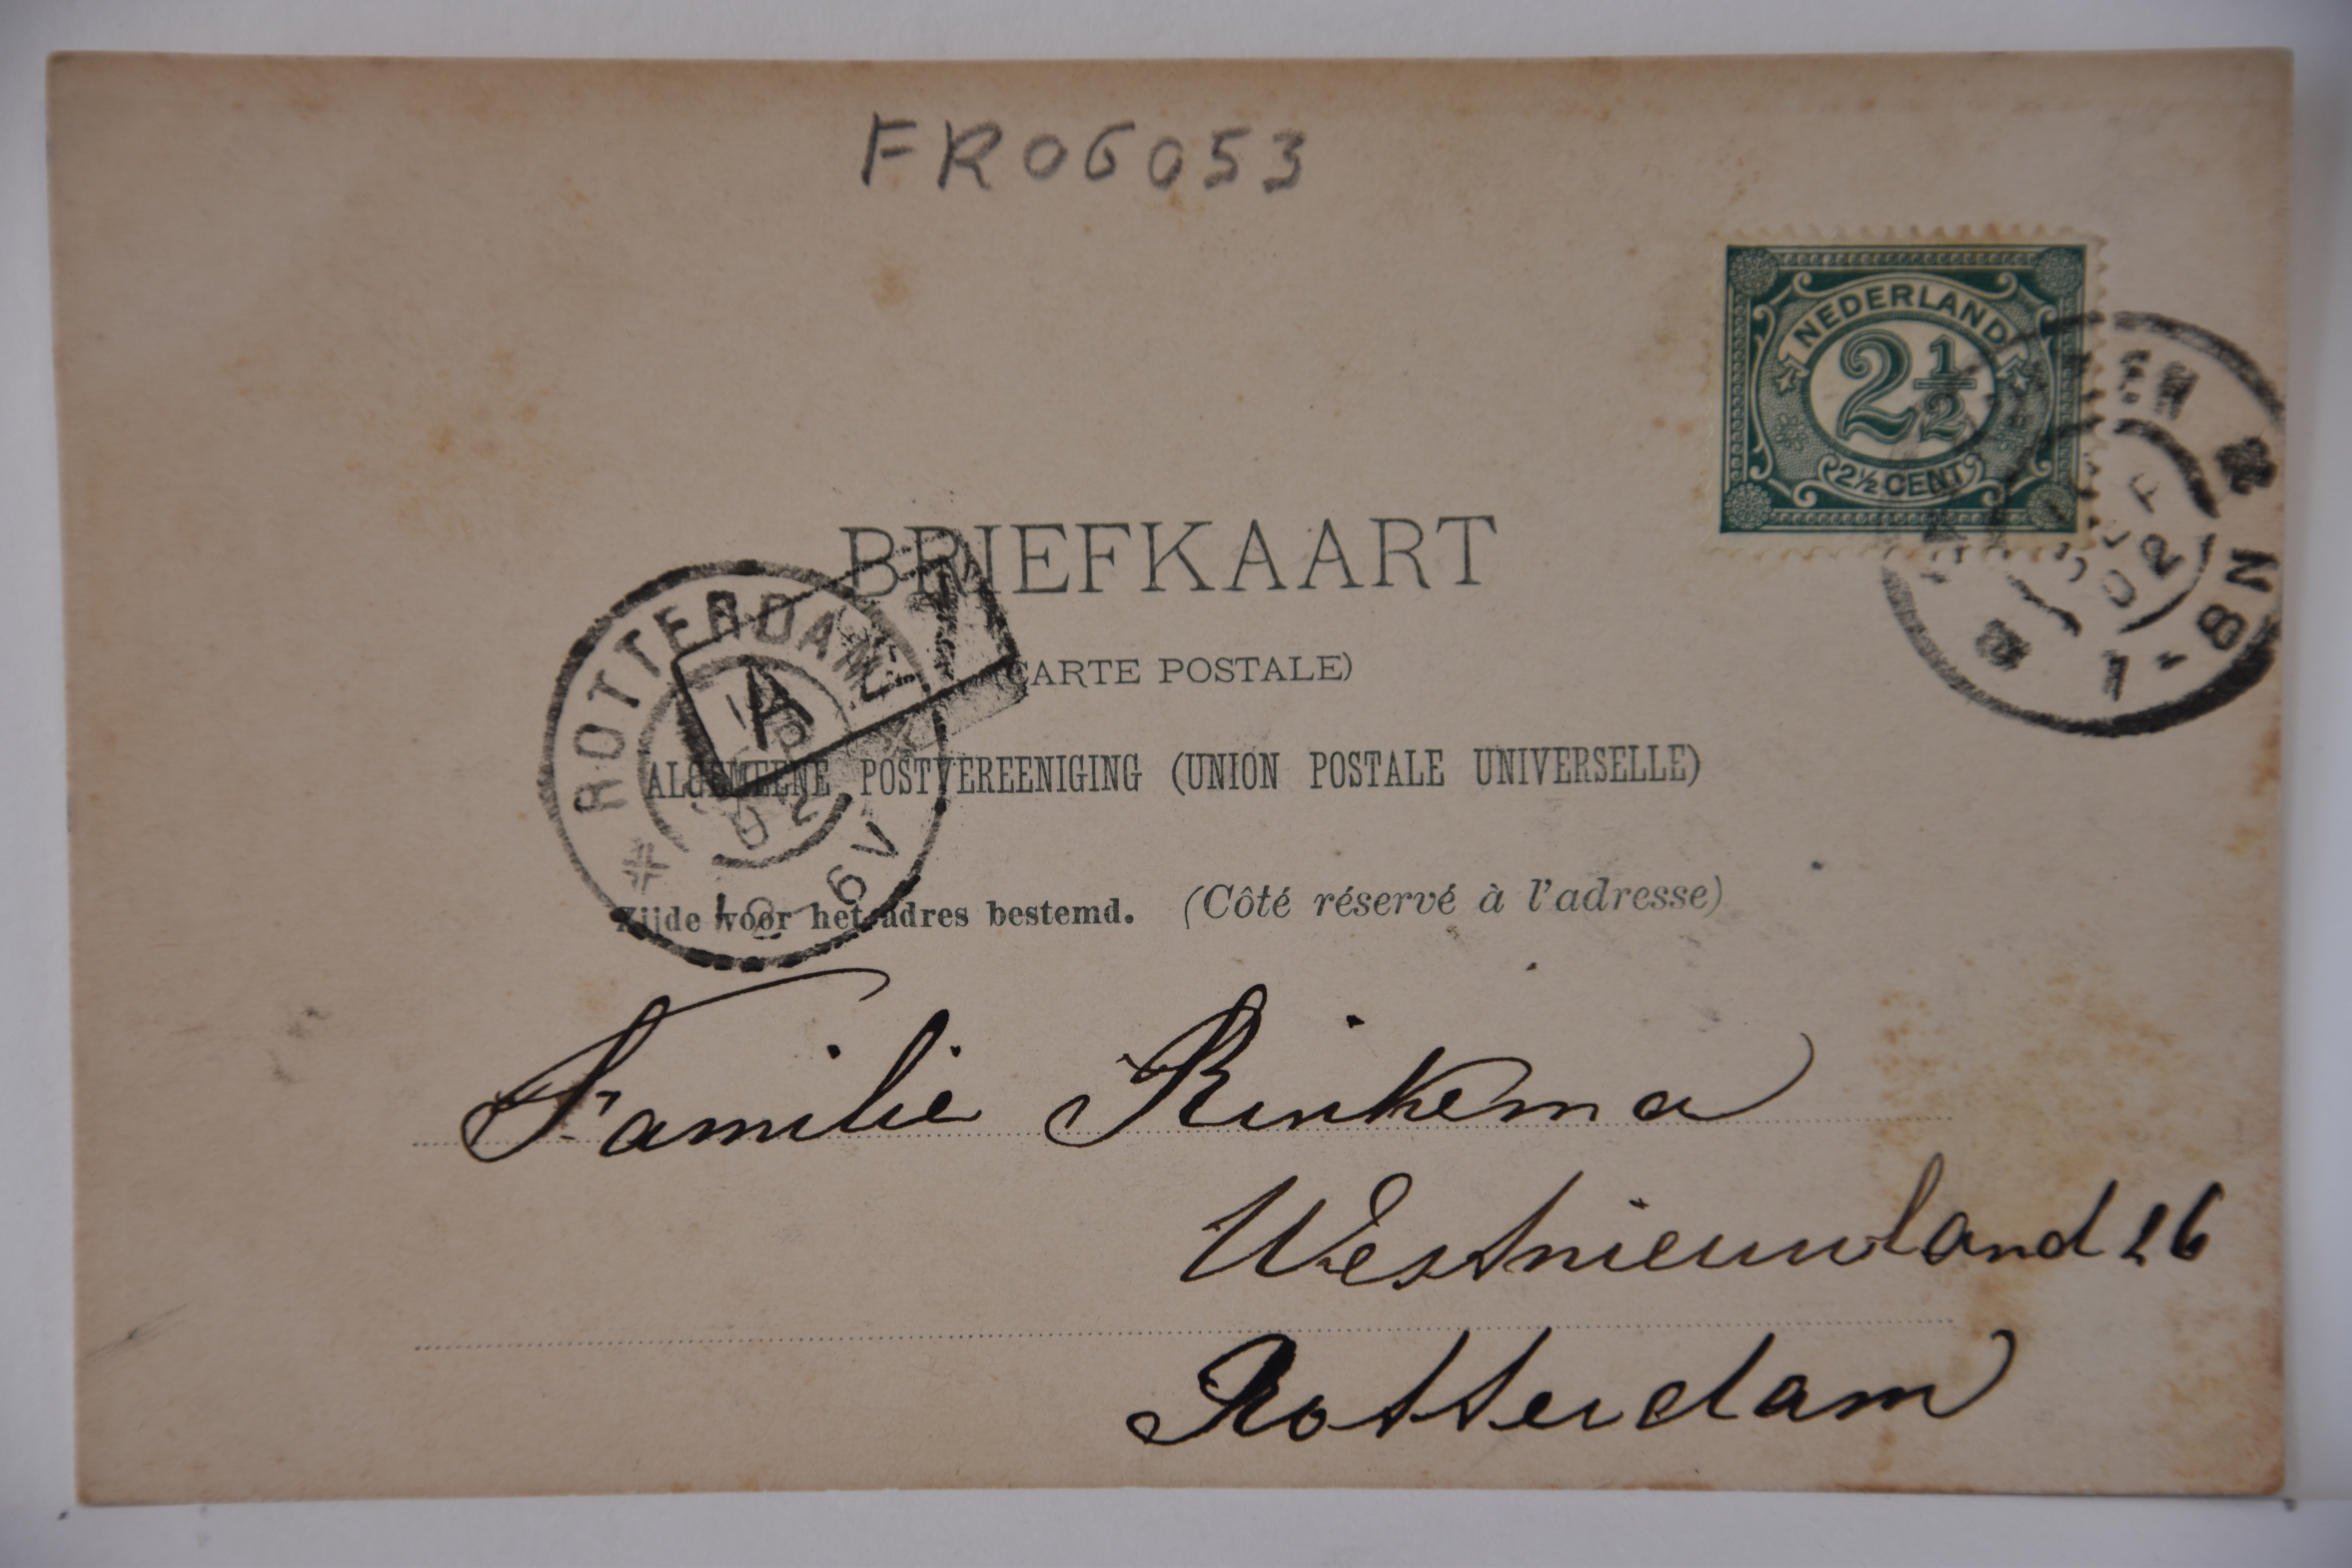 FR06053
NEDERLAND
2½
2½ CENT
BRIEFKAART
ROTTERDAM
A
(CARTE POSTALE)
ALGEMEENE POSTVEREENIGING (UNION POSTALE UNIVERSELLE)
02
6V
8N
Zijde voor het adres bestemd. (Côté réservé à l'adresse)
Familie Rinkema
Westnieuwland 26
Rotterdam